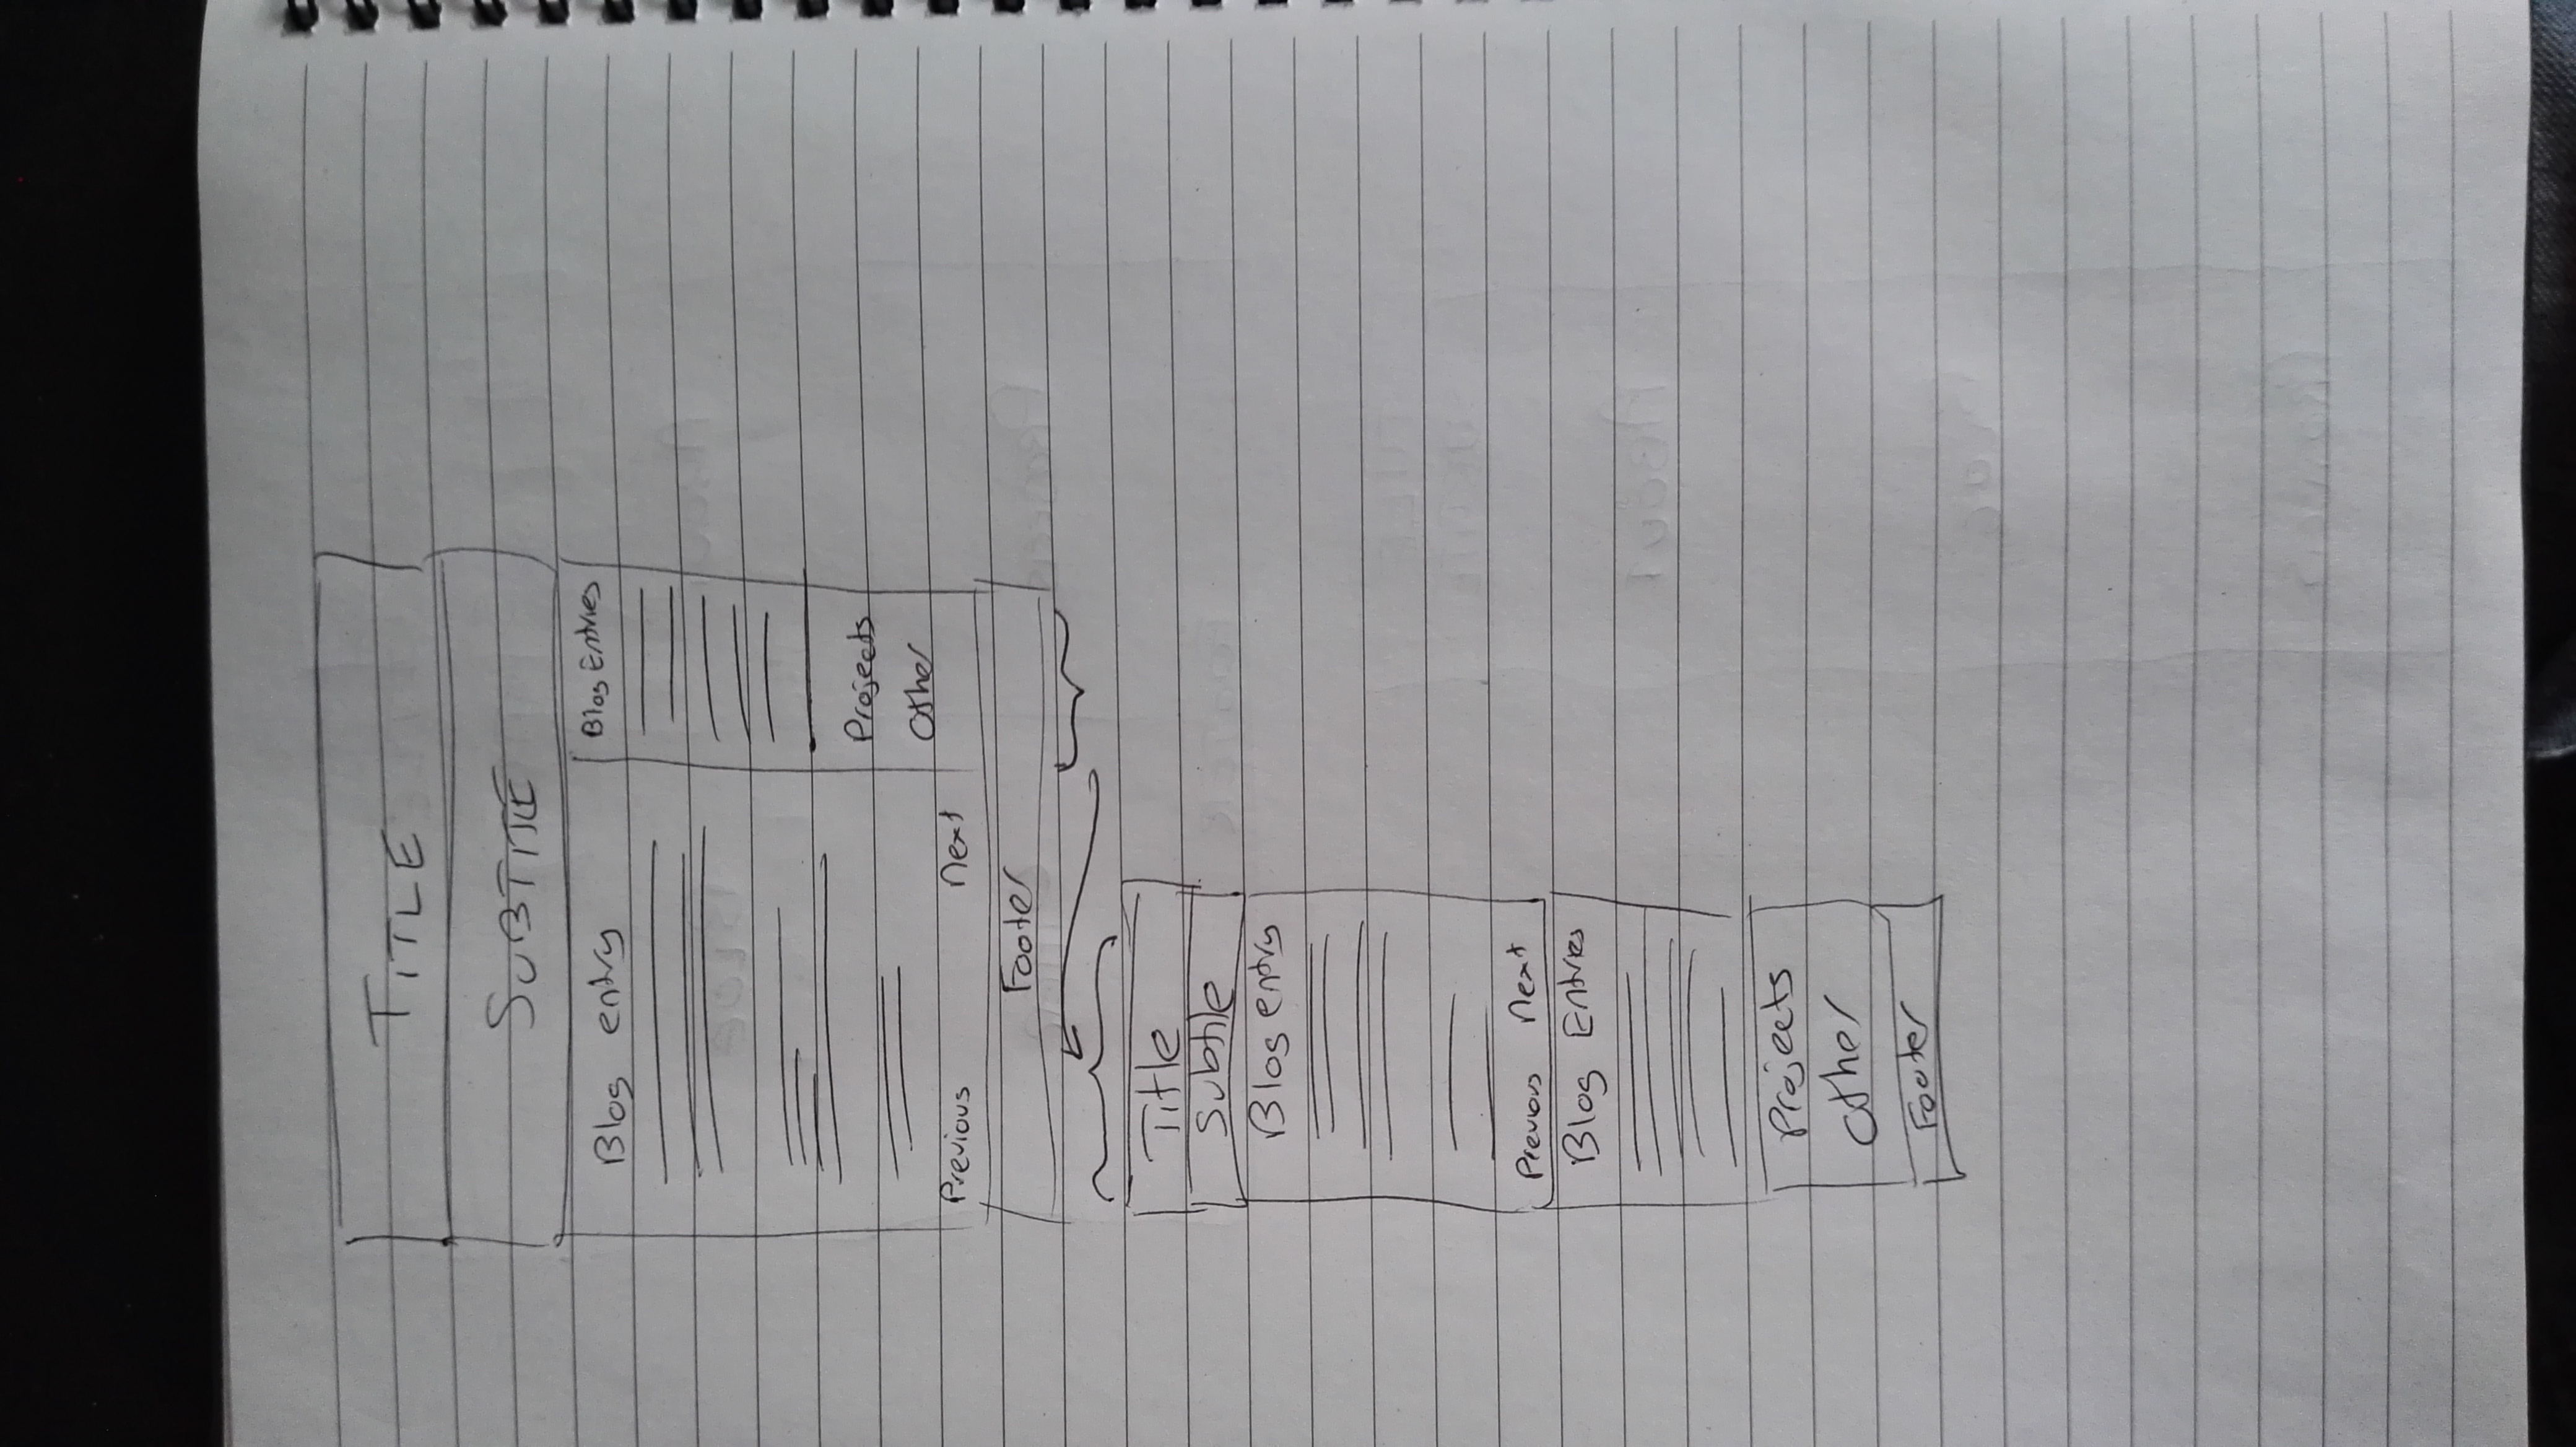 TITLE
SUBTITLE
Blog entry
Blog Entries
Projects
Other
Previous
next
Footer
Title
Subtitle
Blog entry
Previous next
Blog Entries
Projects
Other
Footer